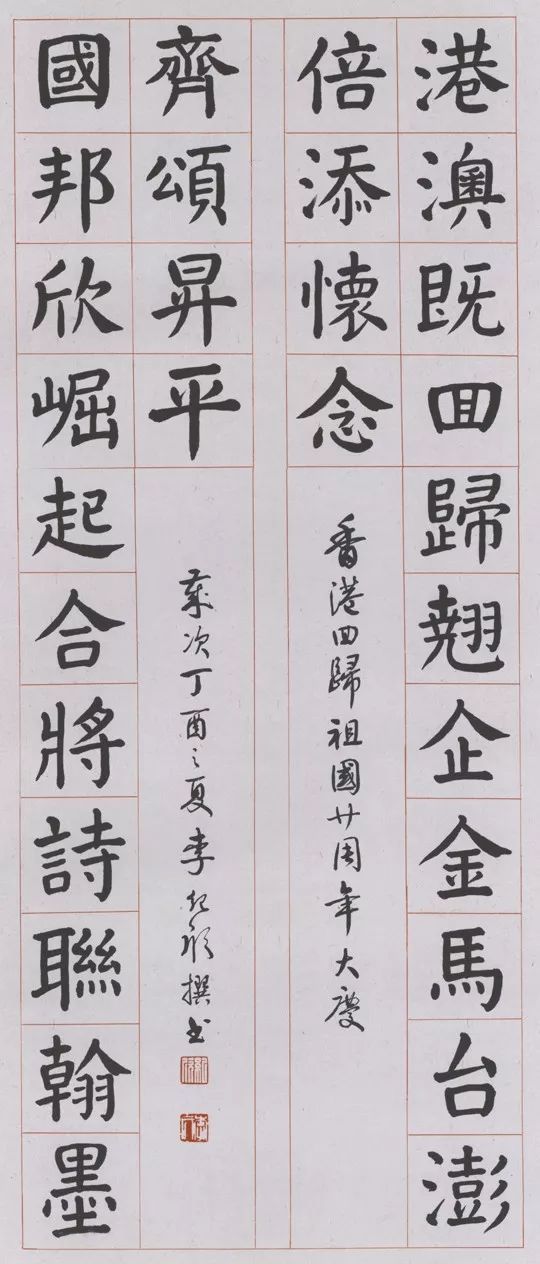 港澳既囬歸翹企金馬台澎
倍添懷念
香港囬歸祖國廿周年大慶
國邦欣崛起合將詩聯翰墨
齊頌昇平
歲次丁酉之夏李撰书